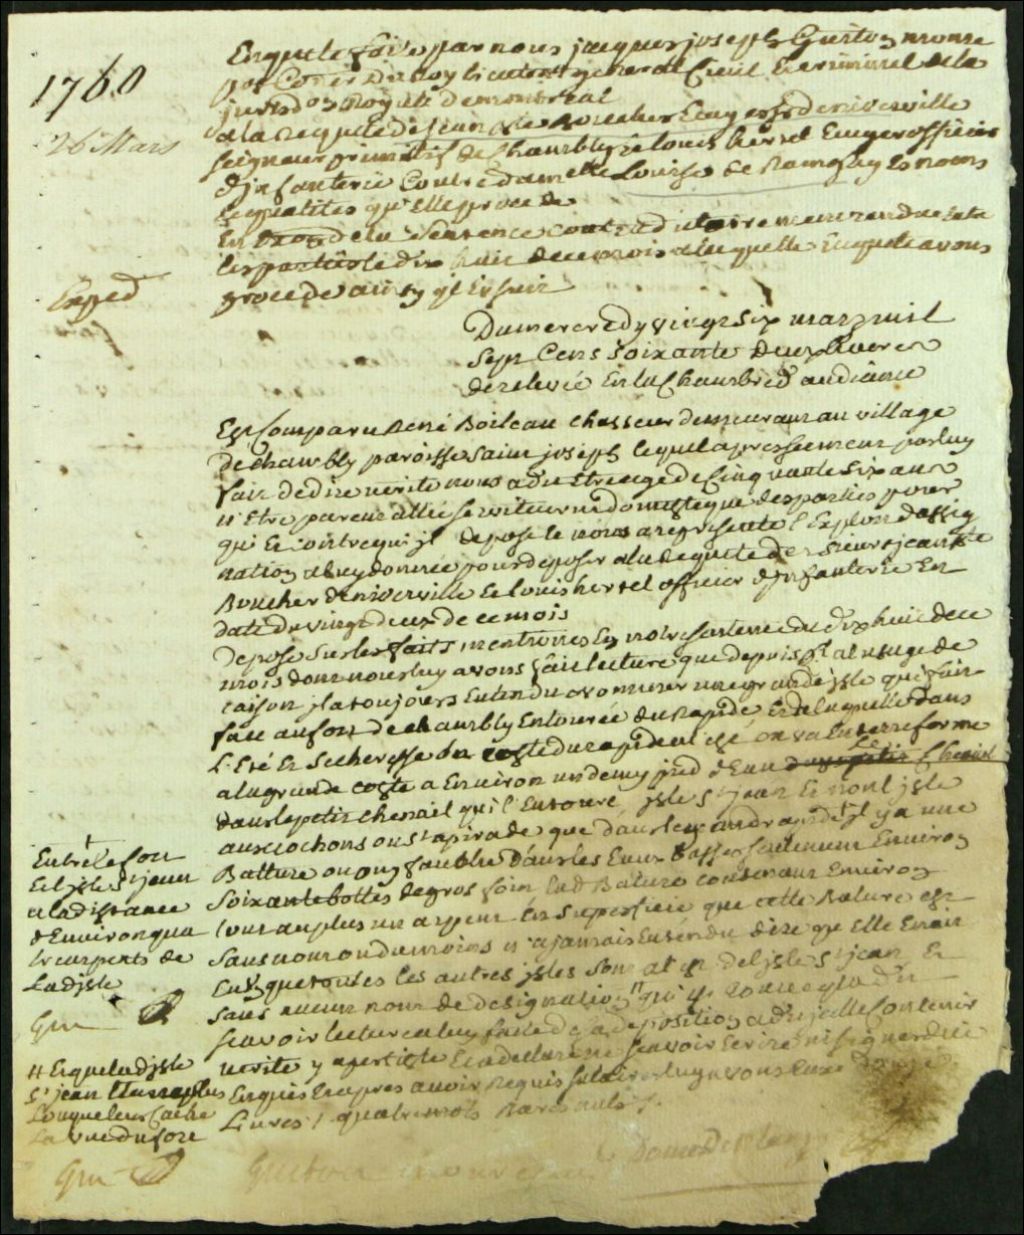 1760
26 Mars
Exped
Enquete faite par nous jacques joseph Guiton monre
pos Coner Du Roy lieutent general Civil Et criminel de la
jurisdon Royale de montreal
a la Requete de jean Bte Boucher Ecuyer Sr de niverville
seigneur primitif de Chambly & louis hertel Ecuyer officier
d'jnfanterie Contre damelle Louise de Ramezay Es noms
Et qualités qu'Elle procede
En de la Sentence contradictoirement rendue Entre
les parties le dix huit de ce mois a laquelle Enquete avons
procedé ainsy qil Ensuit
Du mercredy vingt six mars mil
sept Cens soixante deux heures
de relevée En la Chambre d'audiance
Est Comparu René Boileau chasseur demeurant au village
de chambly paroisse saint joseph lequel apres serment par luy
fait de dire verité nous a dit Etre agé de Cinquante six ans
n'Etre parent allié serviteur ni domestique des parties pour
qui Et contre qui jl depose le nous a representé l'Exploit dassig
nation a luy donnée pour deposer a la Requete des sieurs jean Bte
Boucher de niverville Et louis hertel officier d'jnfanterie En
date du vingt deux de ce mois
Depose sur les faits mentionnés En notre sentence du dix huit de ce
mois dont nous luy avons fait lecture que depuis ql a l'usage de
raison jl a toujours Entendu nommer une grande jsle qui fait
face au fort de chambly Entourée du Rapide Et de laquelle dans
L'Eté En secheresse du costé du rapide on va En terre ferme
a la grande coste a Environ un demy pied d'Eau Le Chenail
dans le petit chenail qui l'Entoure, jsle St jean Et non l'jsle
aux cochons ou st que dans le grand rapide† jl y a une
Batture ou on fauche dans les Eaux Basses seulement Environ
soixante bottes de gros foin lad Bature contenant Environ
tout au plus un arpent En superficie que cette Bature est
sans nom ou du moins n'a jamais Entendu dire qe Elle En ait
Eu & que toutes les autres jsles sont de l'jsle St jean Et
sans aucun nom de designation " qui Est tout ce qu'a dit
scavoir lecture a luy faite de sa deposition a dit jcelle contenir
verité y a persisté Et a declaré ne scavoir Ecrire ni signer de ce
Enquis Et apres avoir requis salaire luy avons taxé douze
Livres / quatre mots Rayés nuls /.
†
Entre le fort
Et l'jsle St jean
a la distance
d'Environ qua
tre arpents de
Ladjsle
Gm
" Et que ladjsle
St jean
Longueleur Cache
La vue du fort
Gm
Guiton monrepos
Danré De Blanzy